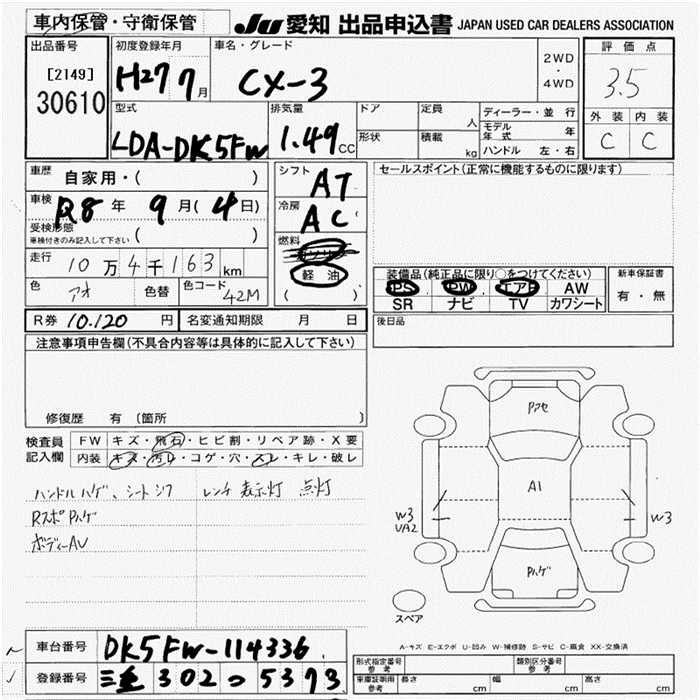 車内保管・守衛保管
JU 愛知 出品申込書 JAPAN USED CAR DEALERS ASSOCIATION
出品番号 初度登録年月 車名・グレード 評価点
[2149] H27 7月 CX-3 2WD・4WD 3.5
30610
型式 排気量 ドア 定員 人 ディーラー・並行 外装 内装
LDA-DK5FW 1.49 CC 形状 積載 kg モデル年式 年 C C
ハンドル 左・右
車歴 自家用・( ) シフト AT セールスポイント(正常に機能するものに限ります)
車検 R8年 9月(4日) 冷房 AC
受検形態 ( )
車検付きのみ記入して下さい
燃料
走行 10万4千163km 軽油
装備品(純正品に限り○をつけてください) 新車保証書
色 アオ 色替 色コード 42M ( )
PS PW エアB AW 有・無
SR ナビ TV カワシート
R券 10,120 円 名変通知期限 月 日
後日品
注意事項申告欄(不具合内容等は具体的に記入して下さい)
修復歴 有 (箇所 )
検査員記入欄 FW キズ・飛石・ヒビ割・リペア跡・X要
内装 キズ・汚レ・コゲ・穴・スレ・キレ・破レ
ハンドルハゲ、シートシワ レンチ表示灯 点灯
RスポPハゲ
ボディーAU
Pアセ
A1
W3
UA2
W3
Pハゲ
スペア
A-キズ E-エクボ U-凹み W-補修跡 S-サビ C-腐食 XX-交換済
車台番号 DK5FW-114336
登録番号 三重 302 つ 5373
形式指定番号 参考 類別区分番号 参考
車庫証明用 参考 長さ cm 幅 cm 高さ cm